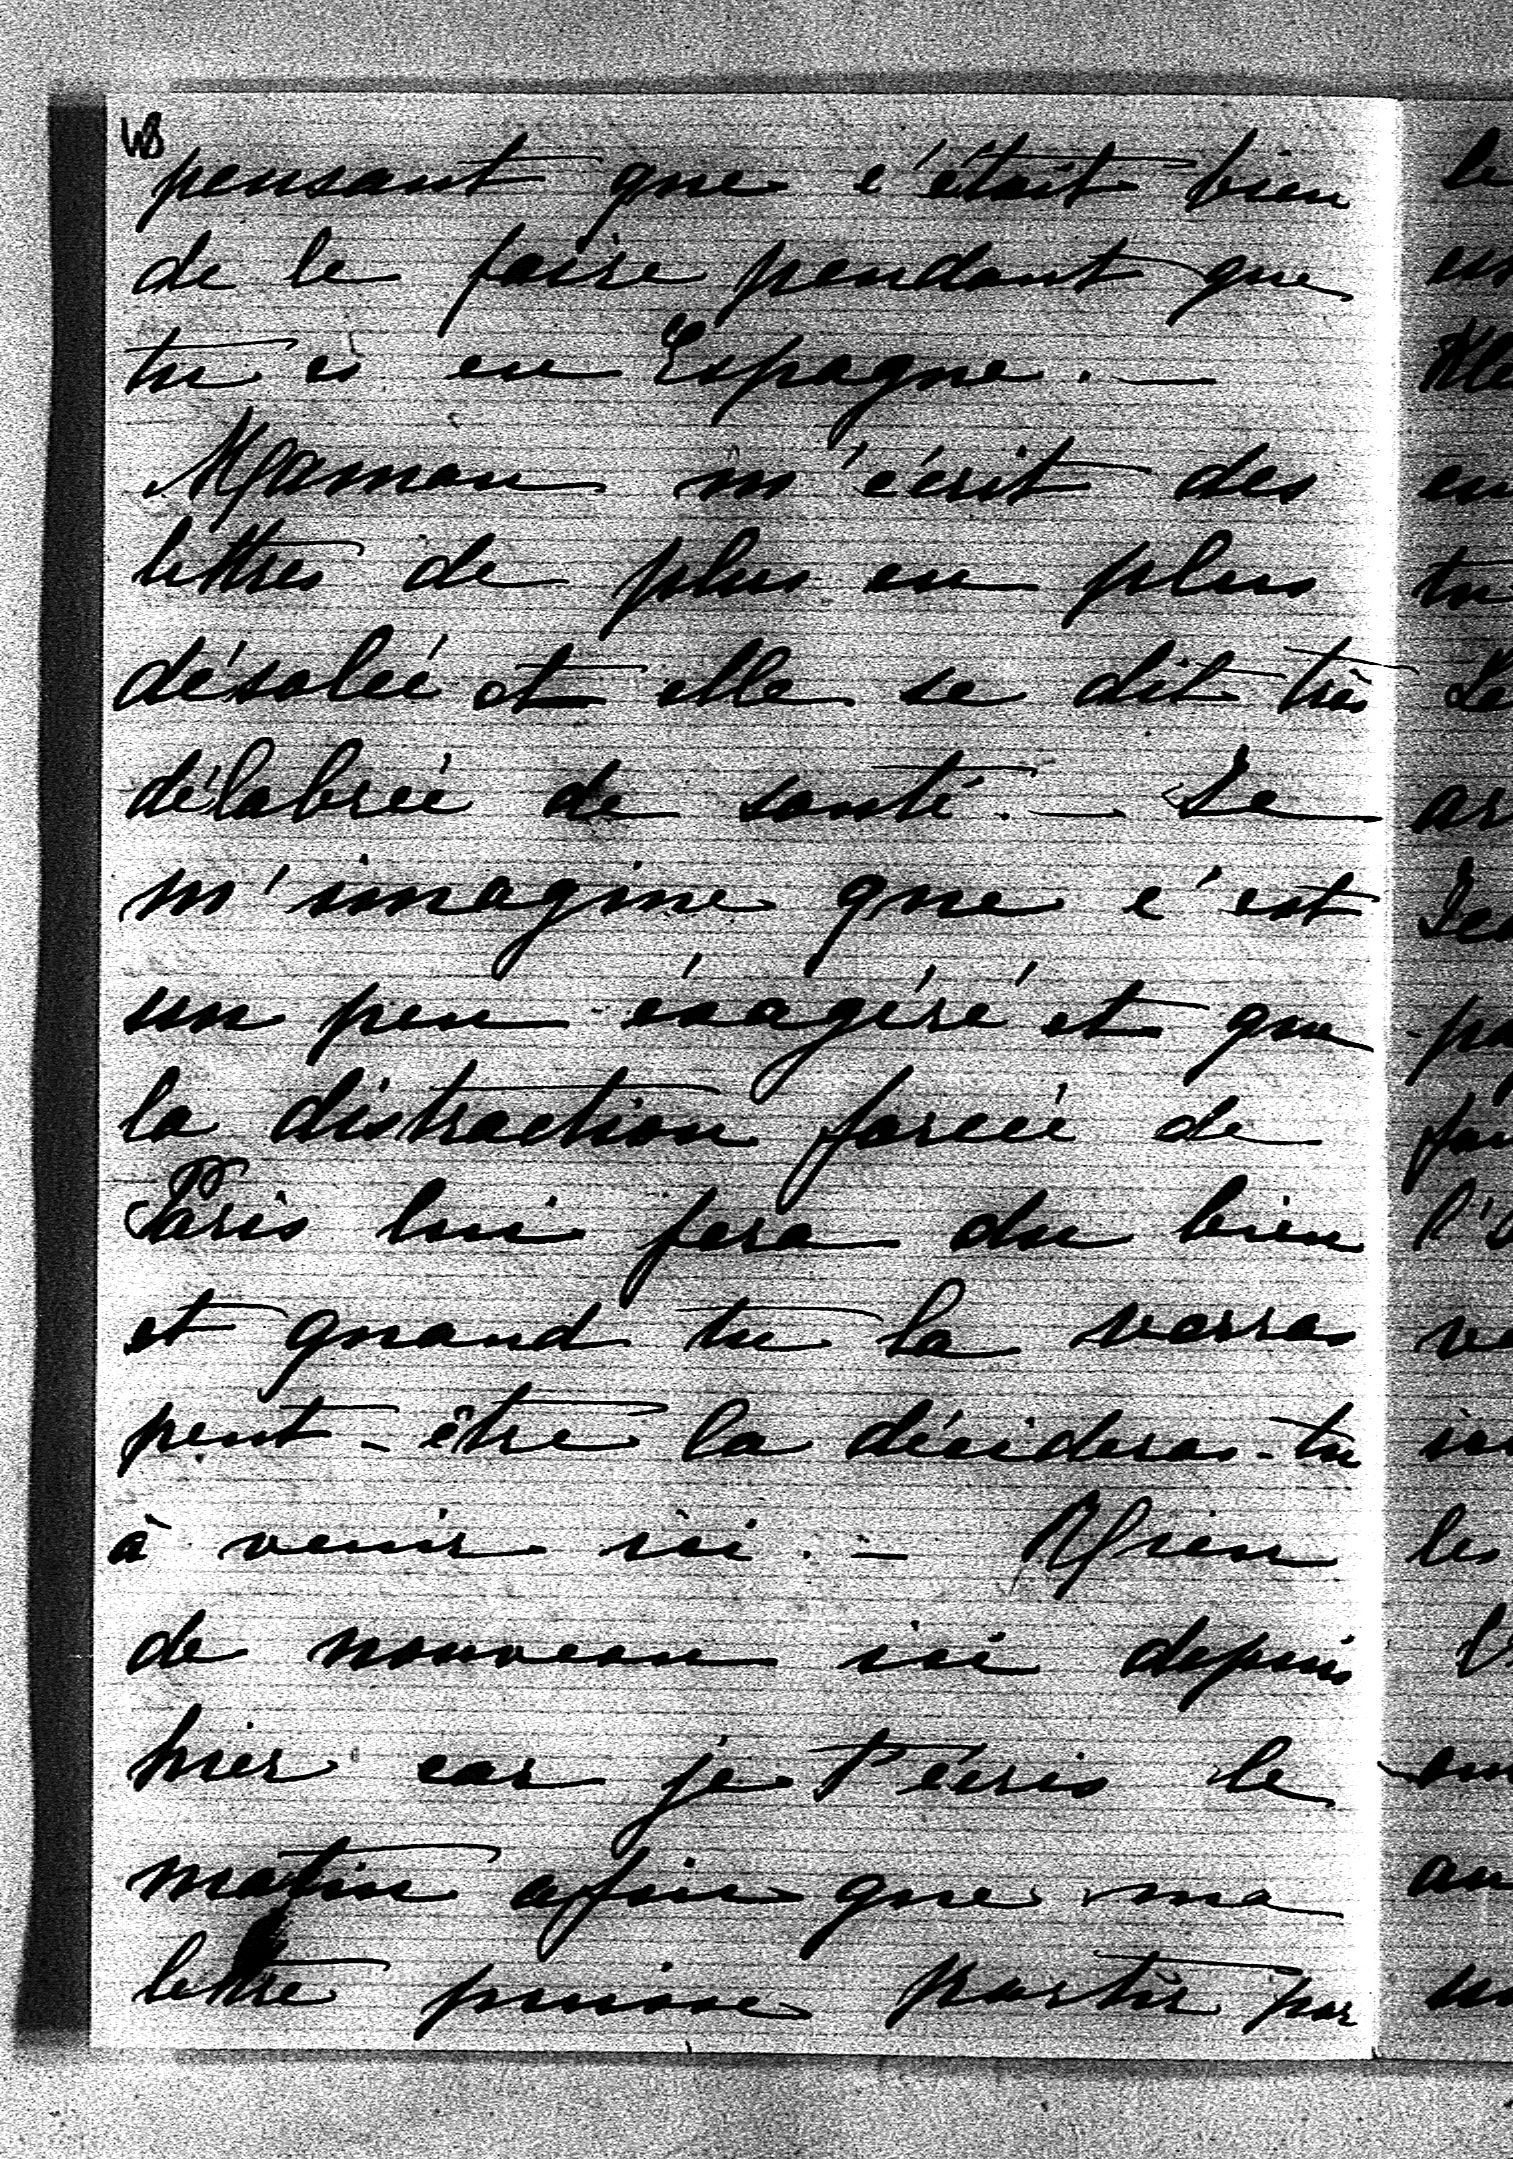 pensant que c'était bien
de le faire pendant que
tu es en Espagne. —
Maman m'écrit des
lettres de plus en plus
désolée et elle se dit très
délabrée de santé. — Je
m'imagine que c'est
un peu éxagéré et que
la distraction forcée de
Paris lui fera du bien
et quand tu la verras
peut-être la décideras-tu
à venir ici. — Rien
de nouveau ici depuis
hier car je t'écris le
matin afin que ma
lettre puisse partir par